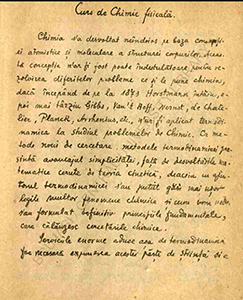 Curs de Chimie fisicală.
Chimia s'a desvoltat neîndoios pe baza concepției
atomistice și moleculare a structurei corpurilor. Aceas-
tă concepție n'ar fi fost poate îndestulătoare pentru re-
zolvirea diferitelor probleme ce și le pune chimia,
dacă începând de pe la 1873 Horstmann întâiu,
apoi mai târziu Gibbs, Van't Hoff, Nernst, Le Chate-
lier, Planck, Arrhenius, etc., n'ar fi aplicat termodi-
namica la studiul problemelor de Chimie. Ca me-
todă nouă de cercetare, metodele termodinamice pre-
zintă avantajul simplicității, față de desvoltările ma-
tematice cerute de teoria cinetică, deoarece cu aju-
torul termodinamicei s'au putut găsi mai ușor
legile multor fenomene chimice și cum vom vedea
s'au formulat definitiv principiile fundamentale,
cari călăuzesc cercetările chimice.
Serviciile enorme aduse așa de termodinamica
fac necesară expunerea acestei părți de știință și